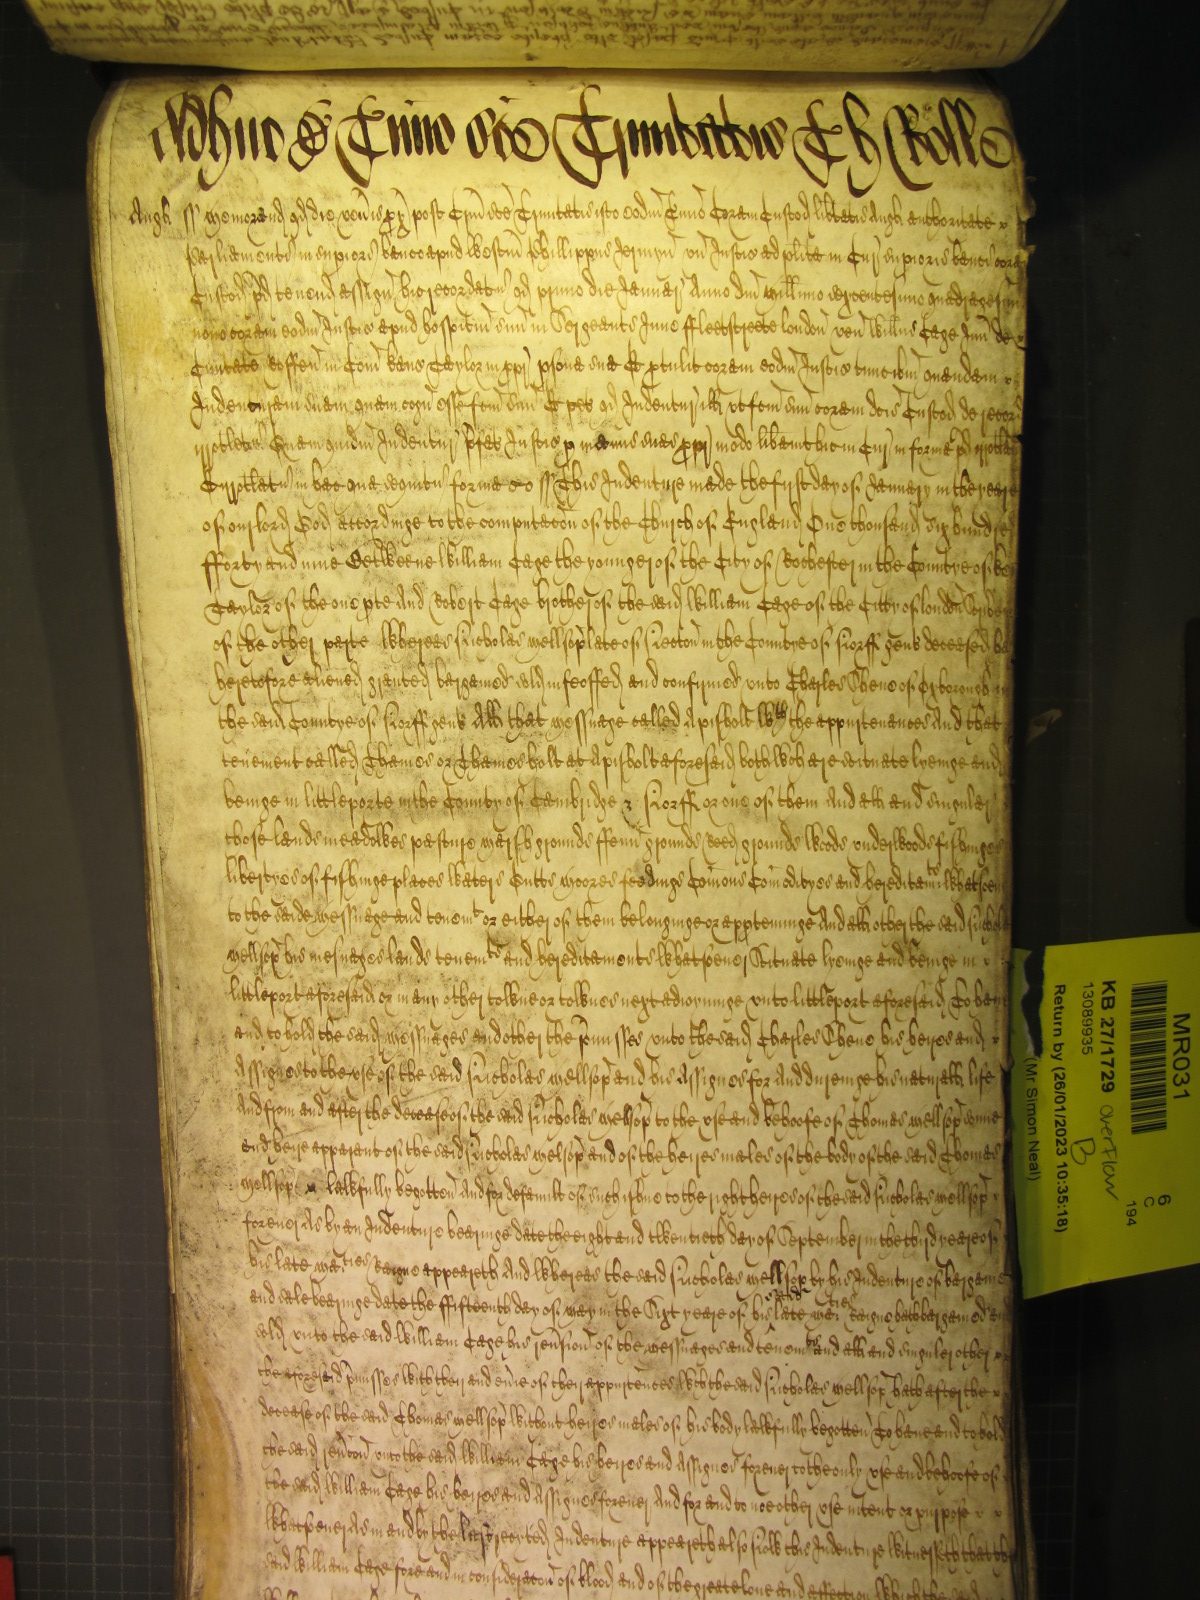 Adhuc de Termino sce Trinitatis Th Rolle
Angl ss Memorand qd die ven'is px' post Crm sce Trinitatis isto eodm Timo Coram Custod lib'tatis Angl authoritate
Parliamenti in sup'iori banco apud Westm Phillippus Jermyn un' Justic ad plita in Cur sup'ioris banci cora
Custod pd tenend assign hic recordatur qd primo die Januarij Anno dni Mill'imo sexcentesimo quadragesim
nono coram eodm Justic apud hospitiu suu in Sergeants Inne ffleetstreete London ven Willus Cage Jun' de
Civitate Roffen in Com Kanc Taylor in pp' psona sua Et ptulit coram eodm Justic tunc ibm quandam
Indenturam suam quam cogn esse fcm suu Et pet qd Indentur ill vt fcm suu coram dcis Custod de record
irotletur Quam quidm Indentur p'fat Justic p manus suas pp' modo lib'avit hic in Cur in forma pd irotla
Et irotlatur in hac que sequitur forma ss This Indenture made the first day of January in the yeare
of our lord God accordinge to the computacon of the Church of England One thousand six hundred
fforty and nine Betweene William Cage the younger of the City of Rochester in the Countye of Ken
Taylor of the one pte And Robert Cage brother of the said William Cage of the Citty of london
of the other parte Whereas Nicholas Mellsop late of Necton in the Countye of Norff gent deceased ha
heretofore aliened granted bargained sold infeoffed and confirmed unto Charles Theno of Oxborough in
the said Countye of Norff gent All that Messuage called Apisholt wth the appurtenances And that
tenement called Thames or Thamesholt at Apisholt aforesaid both wch are scituate lyeinge and
beinge in littleporte in the County of Cambridge & Norff or one of them And all and singular
those lands meadowes pasture marsh grounds ffenn grounds Reed grounds Woods underwoods fishinges
libertyes of fishinge places Waters Cutts moores feedings Comons Comodityes and hereditamts Whatsoev
to the saide Messuage and tenemt or either of them belonginge or apperteninge And all other the said Nichol
Mellsop his mesuages lands tenemts and hereditaments Whatsoever Scituate lyeinge and beinge in
littleport aforesaid or in any other towne or townes next adioyninge unto littleport aforesaid To have
and to hold the said Messuages and other the p'misses unto the said Charles Theno his heires and
Assignes to the use of the said Nicholas Mellsop and his Assignes for And dureinge his naturall life
And from and after the decease of the said Nicholas Mellsop to the use and behoofe of Thomas Mellsop sonne
and heire apparant of the said Nicholas Melsop and of the heires males of the body of the said Thomas
Mellsop lawfully begotten And for default of such issue to the right heires of the said Nicholas Mellsop
forever As by an Indenture bearinge date the eight and twentieth day of September in the third yeare of
his late Maties Raigne appeareth And Whereas the said Nicholas Mellsop by his Indenture of bargaine
and sale bearinge date the ffifteenth day of May in the Sixt yeare of his said late Maties Raigne hath bargained an
sold unto the said William Cage his rev'sion of the Messuages and tenemts and all and singuler other
the aforesaid p'misses with their and ev'ie of their appurtences wch the said Nicholas Mellsop hath after the
decease of the said Thomas Mellsop without heires males of his body lawfully begotten To have and to hold
the said rev'con unto the said William Cage his heires and Assignes forever to the only use and behoofe of
the said William Cage his heires and Assignes forever And for and to noe other use intent or purpose
Whatsoever As in and by the last recited Indenture appeareth also Now this Indenture witnesseth that the
said William Cage fore and in consideracon of blood and of the greate love and affection Which the said
MR031
KB 27/1729 overflow
B
13089935
Return by (26/01/2023 10:35:18)
(Mr Simon Neal)
6
C
194